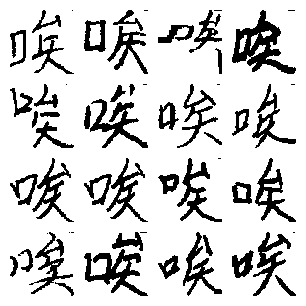 唉唉唉唉
唉唉唉唉
唉唉唉唉
唉唉唉唉